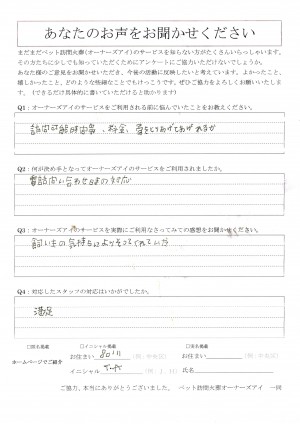 あなたのお声をお聞かせください
まだまだペット訪問火葬(オーナーズアイ)のサービスを知らない方がたくさんいらっしゃいます。
その方たちに少しでも知っていただくためにアンケートにご協力いただけないでしょうか。
あなた様のご意見をお聞かせいただき、今後の活動に反映したいと考えています。よかったこと、
嬉しかったこと、どのような些細なことでもけっこうです。ぜひご協力をよろしくお願いいたします。
(できるだけ具体的に書いていただけると助かります)
Q1:オーナーズアイのサービスをご利用される前に悩んでいたことをお教えください。
訪問可能時間帯、料金、骨をひろあげてあげれるか
Q2:何が決め手となってオーナーズアイのサービスをご利用されましたか。
電話問い合わせ時の対応
Q3:オーナーズアイのサービスを実際にご利用なさってみての感想をお聞かせください。
飼い主の気持ちによりそってくれていた
Q4:対応したスタッフの対応はいかがでしたか。
満足
□匿名掲載 □イニシャル掲載 □実名掲載
お住まい (例:中央区) お住まい (例:中央区)
ホームページでご紹介
イニシャル (例:T.H) 氏名
ご協力、本当にありがとうございました。 ペット訪問火葬オーナーズアイ 一同